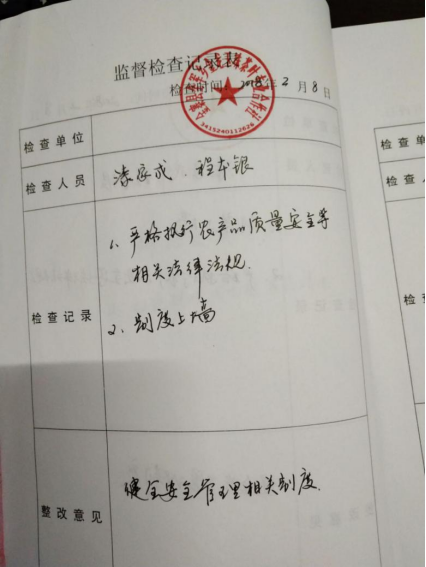 监督检查记录表
检查时间 2018年 2 月 8 日
3415240112626
检查单位
检查人员
漆家成、程本银
检查记录
1、严格执行农产品质量安全等
相关法律法规.
2、制度上墙
整改意见
健全安全管理相关制度.